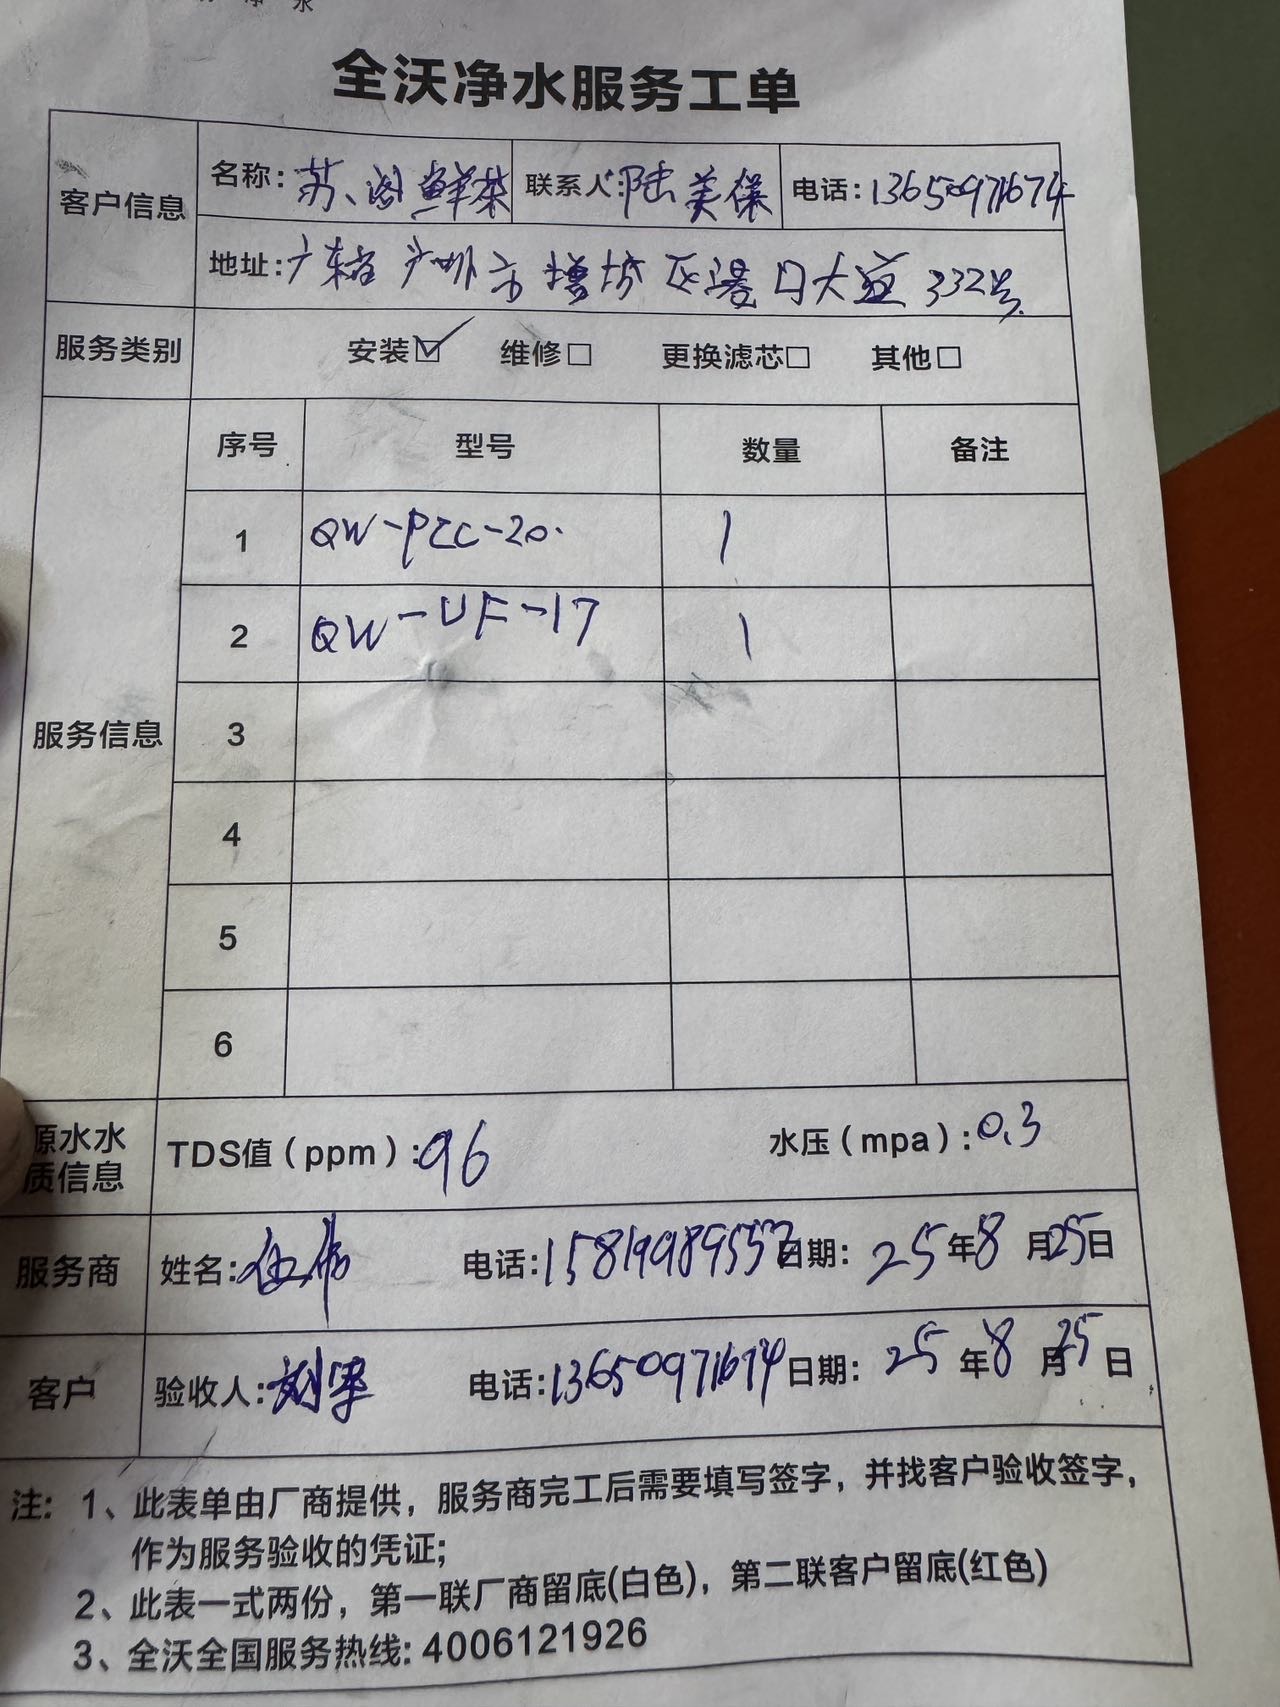 净水
全沃净水服务工单
客户信息
名称:苏阁鲜茶 联系人:陆美保 电话:13650971674
地址:广东省广州市增城区港口大道332号
服务类别 安装☑ 维修□ 更换滤芯□ 其他□
服务信息
序号 型号 数量 备注
1 QW-PZC-20 1
2 QW-UF-17 1
3
4
5
6
原水水质信息 TDS值(ppm):96 水压(mpa):0.3
服务商 姓名:伍伟 电话:15819989557 日期:25年8月25日
客户 验收人: 电话:13650971674 日期:25年8月25日
注:1、此表单由厂商提供,服务商完工后需要填写签字,并找客户验收签字,
作为服务验收的凭证;
2、此表一式两份,第一联厂商留底(白色),第二联客户留底(红色)
3、全沃全国服务热线:4006121926